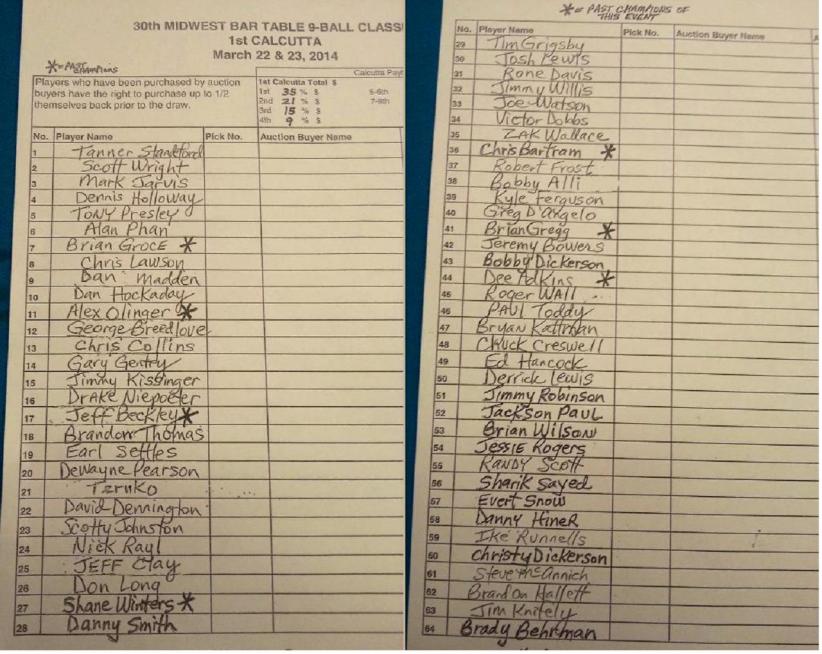 30th MIDWEST BAR TABLE 9-BALL CLASSI
1st CALCUTTA
March 22 & 23, 2014
*=PAST CHAMPIONS
Calcutta Payt
Players who have been purchased by auction
buyers have the right to purchase up to 1/2
themselves back prior to the draw.
1st Calcutta Total $
1st 35 % $ 5-6th
2nd 21 % $ 7-8th
3rd 15 % $
4th 9 % $
No. Player Name Pick No. Auction Buyer Name
1 Tanner Standford
2 Scott Wright
3 Mark Jarvis
4 Dennis Holloway
5 Tony Presley
6 Alan Phan
7 Brian Groce *
8 Chris Lawson
9 Dan Madden
10 Dan Hockaday
11 Alex Olinger *
12 George Breedlove
13 Chris Collins
14 Gary Gentry
15 Jimmy Kissinger
16 Drake Niepoeter
17 Jeff Beckley *
18 Brandon Thomas
19 Earl Settles
20 Dewayne Pearson
21 Teruko
22 David Dennington
23 Scotty Johnston
24 Nick Rayl
25 JEFF Clay
26 Don Long
27 Shane Winters *
28 Danny Smith
*= PAST CHAMPIONS OF
THIS EVENT
No. Player Name Pick No. Auction Buyer Name A
29 Tim Grigsby
30 Josh Lewis
31 Rone Davis
32 Jimmy Willis
33 Joe Watson
34 Victor Dobbs
35 ZAK Wallace
36 Chris Bartram *
37 Robert Frost
38 Bobby Alli
39 Kyle Ferguson
40 Greg D'Angelo
41 Brian Gregg *
42 Jeremy Bowers
43 Bobby Dickerson
44 Dee Adkins *
45 Roger WAll
46 PAUL Toddy
47 Bryan Kattman
48 Chuck Creswell
49 Ed Hancock
50 Derrick Lewis
51 Jimmy Robinson
52 Jackson PAUL
53 Brian Wilson
54 JESSIE Rogers
55 RANDY Scott
56 Sharik Sayed
57 Evert Snow
58 Danny Hiner
59 Ike Runnells
60 Christy Dickerson
61 Steve McAnnich
62 Brandon Hallett
63 Jim Knitely
64 Brady Behrman